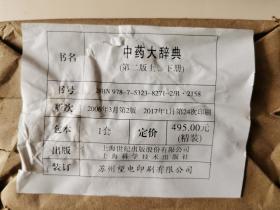 书名 中药大辞典
(第二版上、下册)
书号 ISBN 978-7-5323-8271-2/R·2158
版次 2006年3月第2版 2017年1月第24次印刷
包本 1套 定价 495.00元
(精装)
出版 上海世纪出版股份有限公司
上海科学技术出版社
装订 苏州望电印刷有限公司